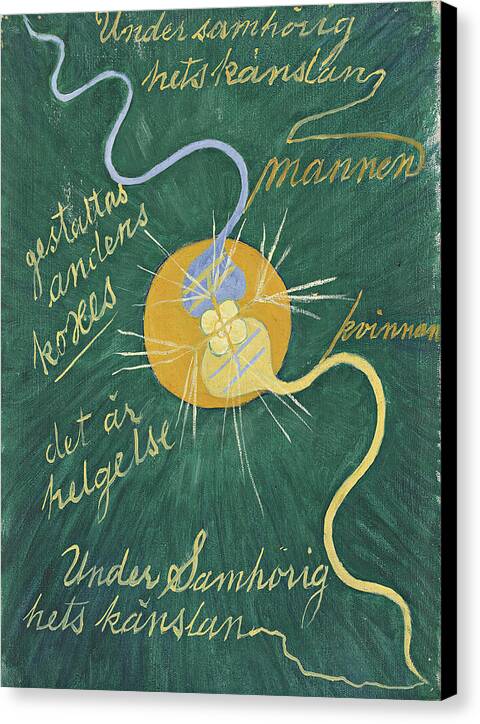 Under samhörig
hets känslan
mannen
gestaltas
andens
kvinnan
det är
helgelse
Under Samhörig
hets känslan